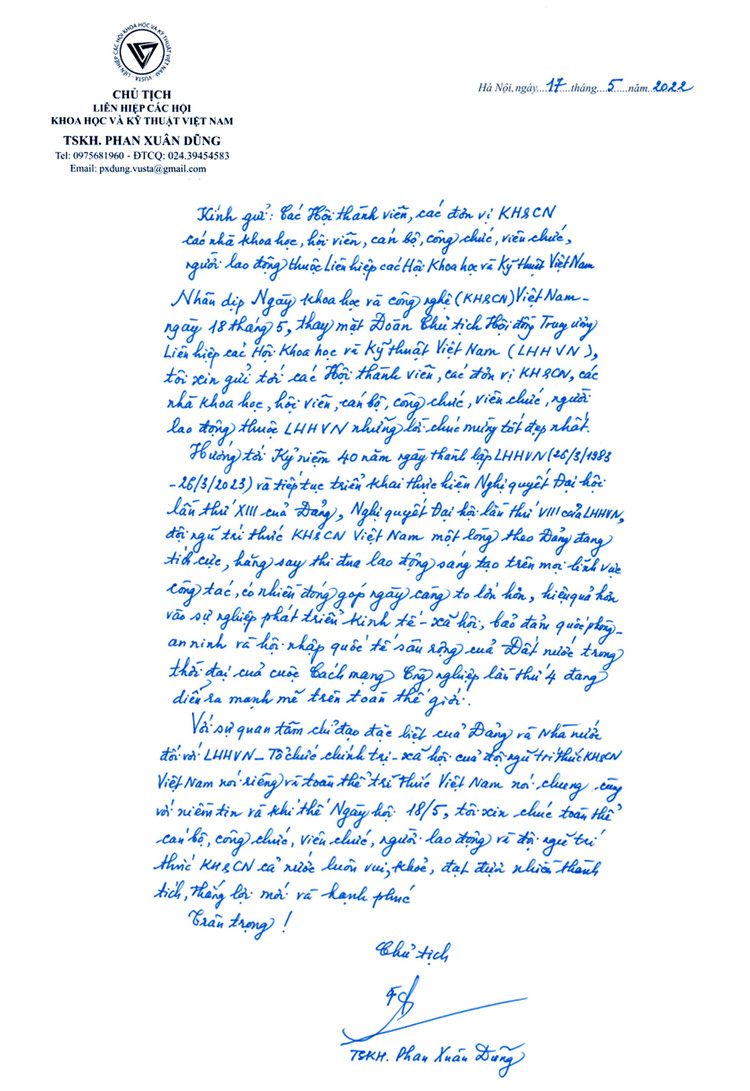 LIÊN HIỆP CÁC HỘI KHOA HỌC VÀ KỸ THUẬT VIỆT NAM
VUSTA
CHỦ TỊCH
LIÊN HIỆP CÁC HỘI
KHOA HỌC VÀ KỸ THUẬT VIỆT NAM
TSKH. PHAN XUÂN DŨNG
Tel: 0975681960 - ĐTCQ: 024.39454583
Email: pxdung.vusta@gmail.com
Hà Nội, ngày...17...tháng...5...năm...2022
Kính gửi: Các Hội thành viên, các đơn vị KH&CN
các nhà khoa học, hội viên, cán bộ, công chức, viên chức,
người lao động thuộc Liên hiệp các Hội Khoa học và Kỹ thuật Việt Nam
Nhân dịp Ngày khoa học và công nghệ (KH&CN) Việt Nam -
ngày 18 tháng 5, thay mặt Đoàn Chủ tịch Hội đồng Trung ương
Liên hiệp các Hội Khoa học và Kỹ thuật Việt Nam (LHHVN),
tôi xin gửi tới các Hội thành viên, các đơn vị KH&CN, các
nhà khoa học, hội viên, cán bộ, công chức, viên chức, người
lao động thuộc LHHVN những lời chúc mừng tốt đẹp nhất.
Hướng tới Kỷ niệm 40 năm ngày thành lập LHHVN (26/3/1983
-26/3/2023) và tiếp tục triển khai thực hiện Nghị quyết Đại hội
lần thứ XIII của Đảng, Nghị quyết Đại hội lần thứ VIII của LHHVN,
đội ngũ trí thức KH&CN Việt Nam một lòng theo Đảng đang
tích cực, hăng say thi đua lao động sáng tạo trên mọi lĩnh vực
công tác, có nhiều đóng góp ngày càng to lớn hơn, hiệu quả hơn
vào sự nghiệp phát triển kinh tế - xã hội, bảo đảm quốc phòng -
an ninh và hội nhập quốc tế sâu rộng của Đất nước trong
thời đại của cuộc Cách mạng Công nghiệp lần thứ 4 đang
diễn ra mạnh mẽ trên toàn thế giới.
Với sự quan tâm chỉ đạo đặc biệt của Đảng và Nhà nước
đối với LHHVN - Tổ chức chính trị - xã hội của đội ngũ trí thức KH&CN
Việt Nam nói riêng và toàn thể trí thức Việt Nam nói chung cùng
với niềm tin và khí thế Ngày hội 18/5, tôi xin chúc toàn thể
cán bộ, công chức, viên chức, người lao động và đội ngũ trí
thức KH&CN cả nước luôn vui, khoẻ, đạt được nhiều thành
tích, thắng lợi mới và hạnh phúc
Trân trọng!
Chủ tịch
TSKH. Phan Xuân Dũng